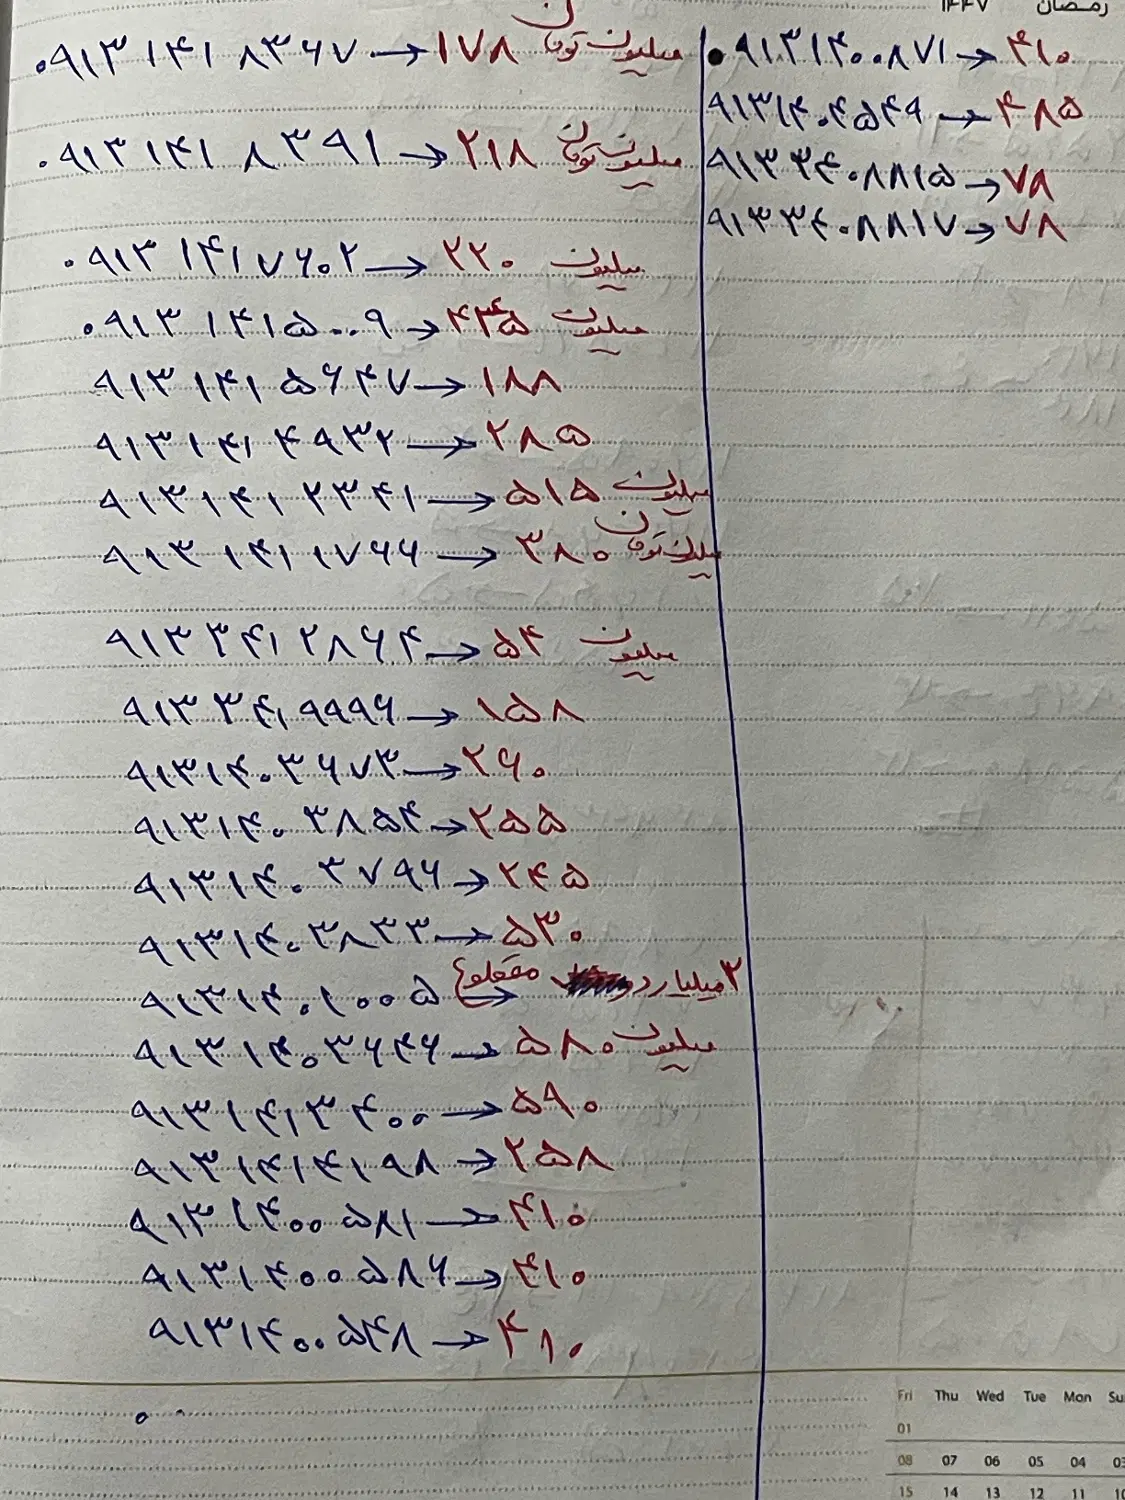 رمضان ۱۴۴۷
۰۹۱۳ ۱۴۱ ۸۳۶۷ → ۱۷۸ میلیون تومان
۰۹۱۳ ۱۴۱ ۸۳۹۱ → ۲۱۸ میلیون تومان
۰۹۱۳ ۱۴۱۷۶۰۲ → ۲۲۰ میلیون
۰۹۱۳ ۱۴۱۵۰۰۹ → ۴۳۵ میلیون
۹۱۳ ۱۴۱ ۵۶۴۷ → ۱۸۸
۹۱۳ ۱۴۱ ۴۹۳۲ → ۲۸۵
۹۱۳ ۱۴۱ ۲۳۴۱ → ۵۱۵ میلیون
۹۱۳ ۱۴۱ ۱۷۶۶ → ۳۸۰ میلیون تومان
۹۱۳ ۳۴۱ ۲۸۶۴ → ۵۴ میلیون
۹۱۳ ۳۴۱ ۹۹۹۶ → ۱۵۸
۹۱۳۱۴۰۳۶۷۳ → ۲۶۰
۹۱۳۱۴۰ ۳۸۵۴ → ۲۵۵
۹۱۳۱۴۰ ۳۷۹۶ → ۲۴۵
۹۱۳۱۴۰۳۸۳۳ → ۵۳۰
۹۱۳۱۴۰۱۰۰۵ → ۲ میلیارد مقطوع
۹۱۳۱۴۰۳۶۴۶ → ۵۸۰ میلیون
۹۱۳۱۴۱۳۴۰۰ → ۵۹۰
۹۱۳۱۴۱۴۱۹۸ → ۲۵۸
۹۱۳۱۴۰۰۵۸۱ → ۴۱۰
۹۱۳۱۴۰۰۵۸۶ → ۴۱۰
۹۱۳۱۴۰۰۵۴۸ → ۴۱۰
۰۹۱۳۱۴۰۰۸۷۱ → ۴۱۰
۹۱۳۱۴۰۴۵۴۹ → ۴۸۵
۹۱۳۳۴۰۸۸۱۵ → ۷۸
۹۱۳۳۴۰۸۸۱۷ → ۷۸
Fri Thu Wed Tue Mon Su
01
08 07 06 05 04 03
15 14 13 12 11 10